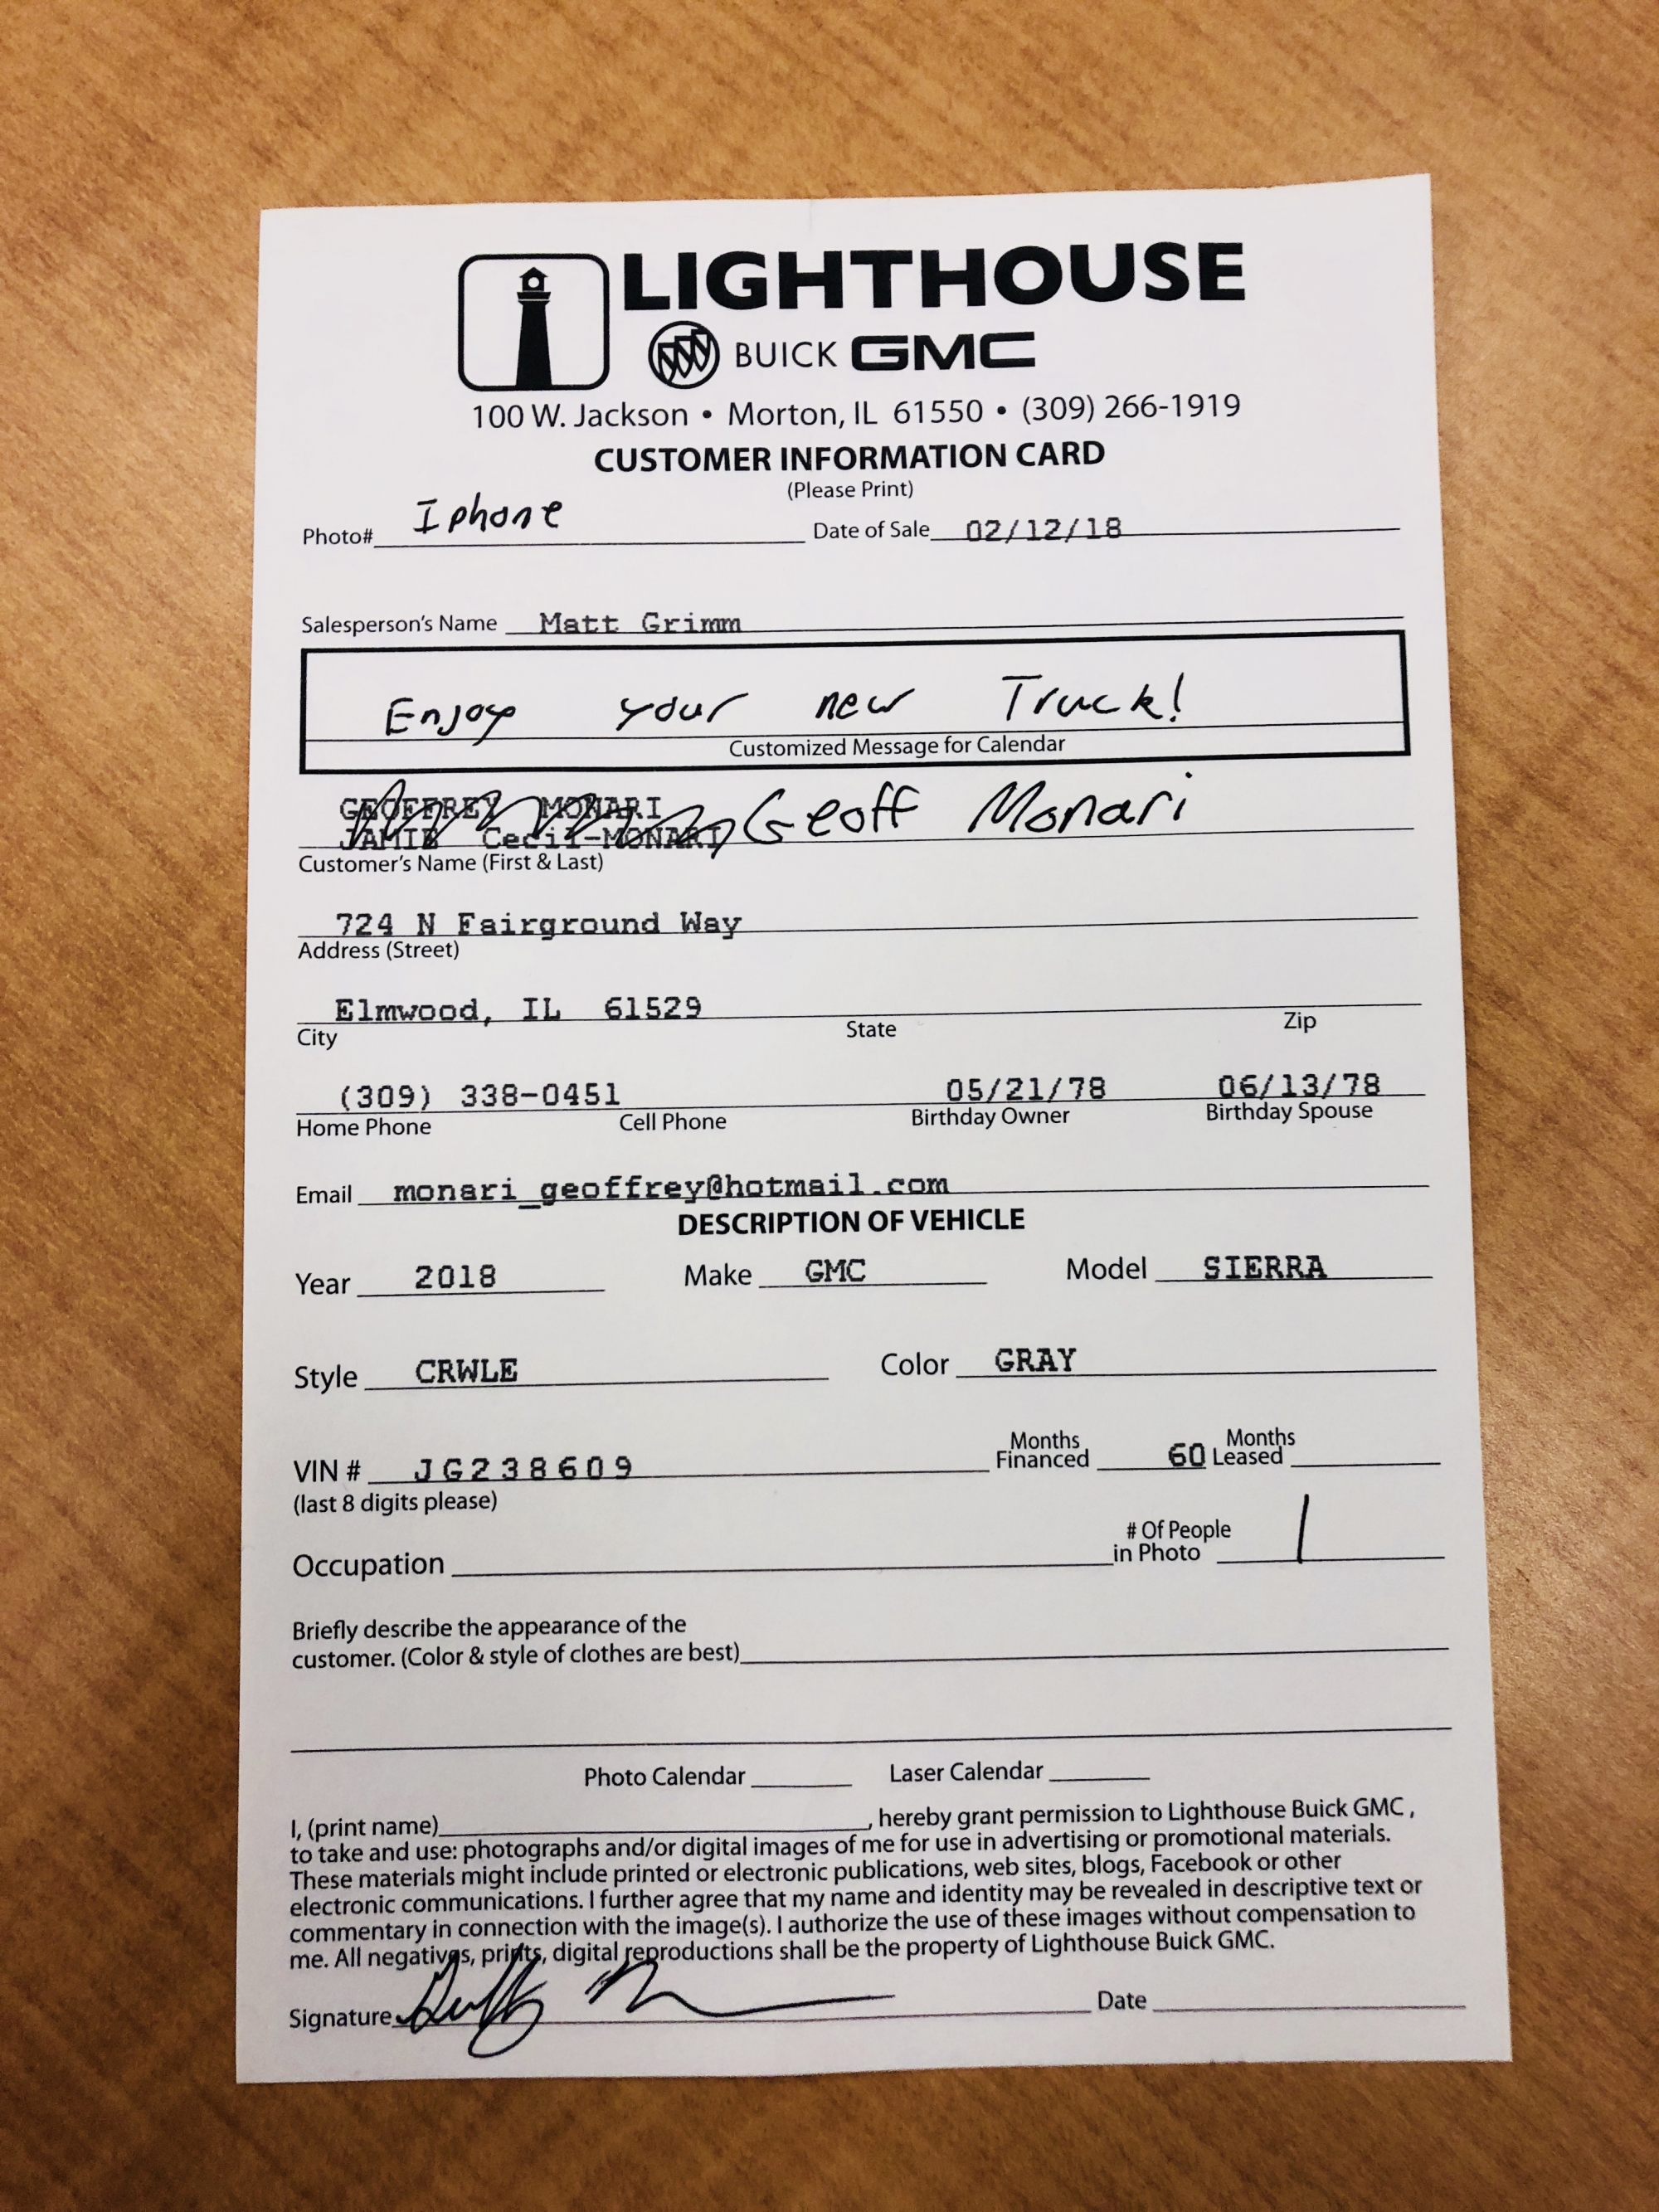 LIGHTHOUSE
BUICK GMC
100 W. Jackson • Morton, IL 61550 • (309) 266-1919
CUSTOMER INFORMATION CARD
(Please Print)
Photo# Iphone Date of Sale 02/12/18
Salesperson's Name Matt Grimm
Enjoy your new Truck!
Customized Message for Calendar
GEOFFREY MONARI Geoff Monari
JAMIE Cecil-MONARI
Customer's Name (First & Last)
724 N Fairground Way
Address (Street)
Elmwood, IL 61529
City State Zip
(309) 338-0451 05/21/78 06/13/78
Home Phone Cell Phone Birthday Owner Birthday Spouse
Email monari_geoffrey@hotmail.com
DESCRIPTION OF VEHICLE
Year 2018 Make GMC Model SIERRA
Style CRWLE Color GRAY
VIN # JG238609 Months Financed 60 Months Leased
(last 8 digits please)
Occupation # Of People in Photo 1
Briefly describe the appearance of the
customer. (Color & style of clothes are best)
Photo Calendar Laser Calendar
I, (print name) , hereby grant permission to Lighthouse Buick GMC ,
to take and use: photographs and/or digital images of me for use in advertising or promotional materials.
These materials might include printed or electronic publications, web sites, blogs, Facebook or other
electronic communications. I further agree that my name and identity may be revealed in descriptive text or
commentary in connection with the image(s). I authorize the use of these images without compensation to
me. All negatives, prints, digital reproductions shall be the property of Lighthouse Buick GMC.
Signature Date